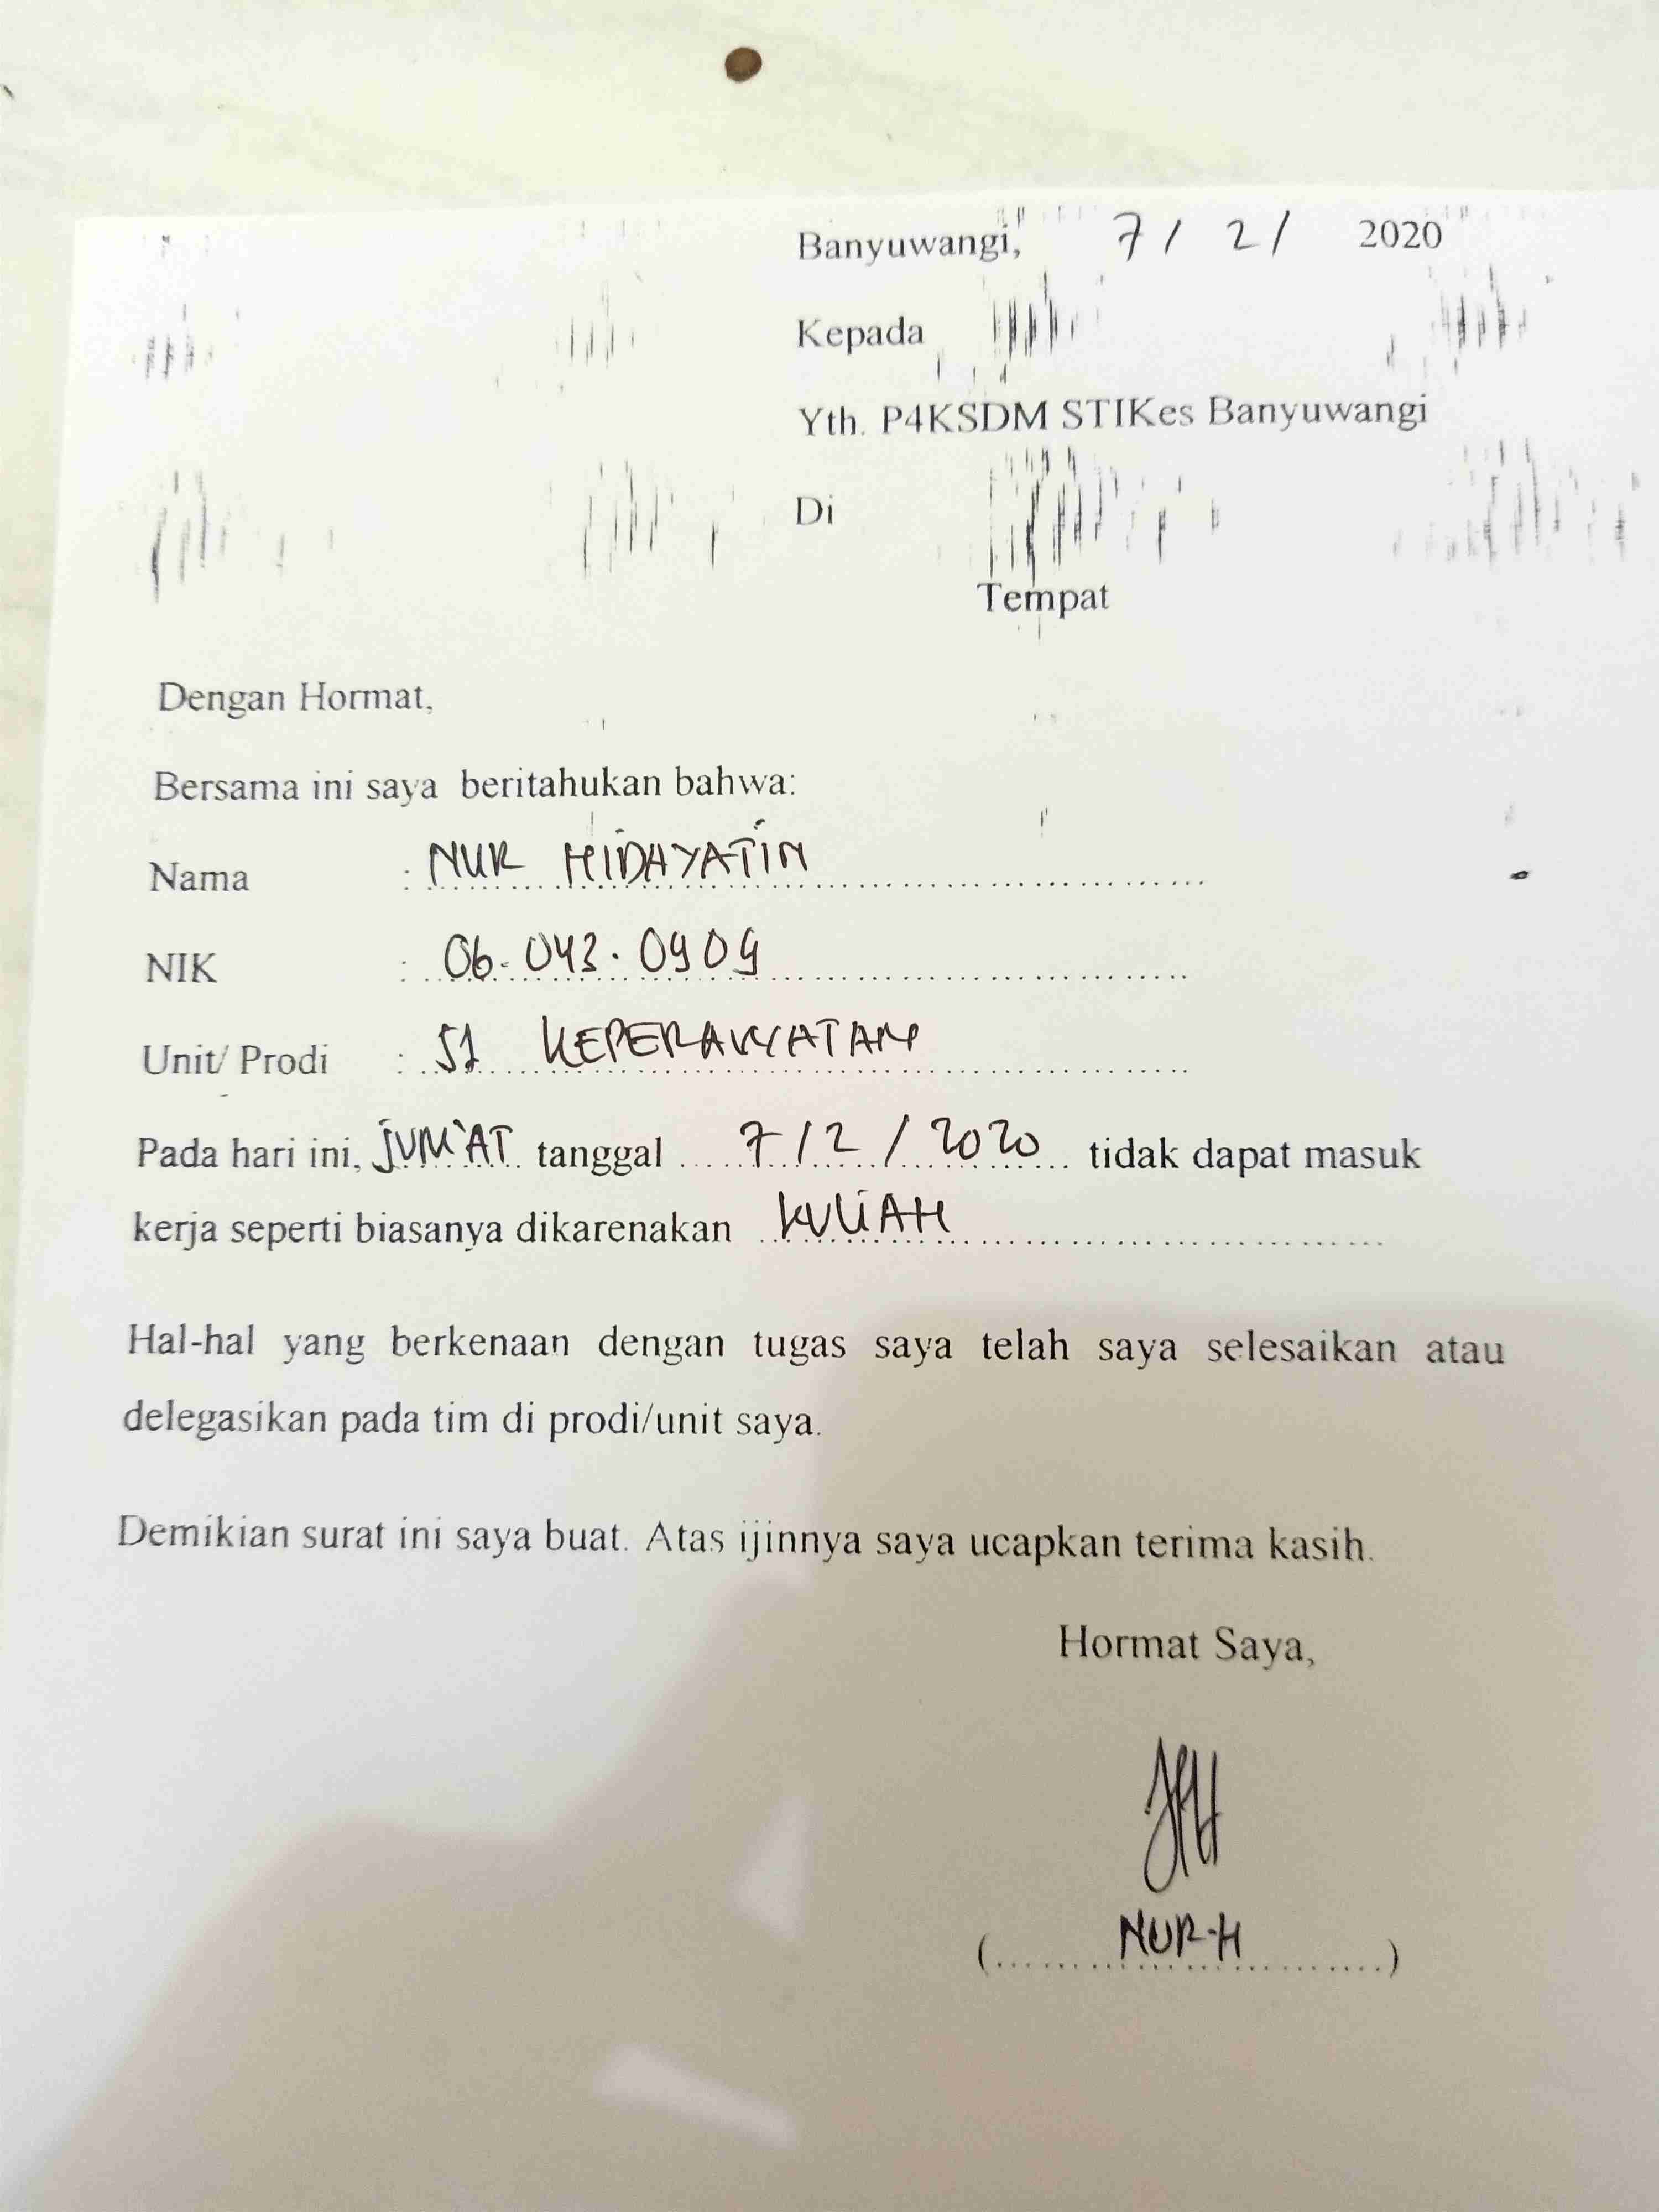 Banyuwangi, 7 / 2 / 2020
Kepada
Yth. P4KSDM STIKes Banyuwangi
Di
Tempat
Dengan Hormat,
Bersama ini saya beritahukan bahwa:
Nama : NUR HIDAYATIN
NIK : 06.043.0909
Unit/ Prodi : S1 KEPERAWATAN
Pada hari ini, JUM'AT tanggal 7 / 2 / 2020 tidak dapat masuk
kerja seperti biasanya dikarenakan KULIAH
Hal-hal yang berkenaan dengan tugas saya telah saya selesaikan atau
delegasikan pada tim di prodi/unit saya.
Demikian surat ini saya buat. Atas ijinnya saya ucapkan terima kasih.
Hormat Saya,
(NUR-H)